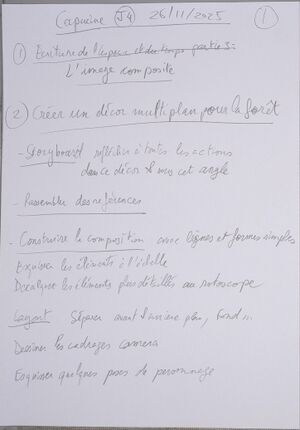 Capucine J4 26/11/2025 1
① Ecriture de l'espace et du temps partie 3:
L'image composite
② Créer un décor multiplan pour la forêt
- Storyboard réfléchir à toutes les actions
dans ce décor sous cet angle
- Rassembler des références
- Construire la composition avec lignes et formes simples
Esquisser les éléments à l'échelle
Décalquer les éléments plus détaillés au rotoscope
Layout Séparer avant arrière plan, fond ...
Dessiner les cadrages camera
Esquisser quelques poses de personnage